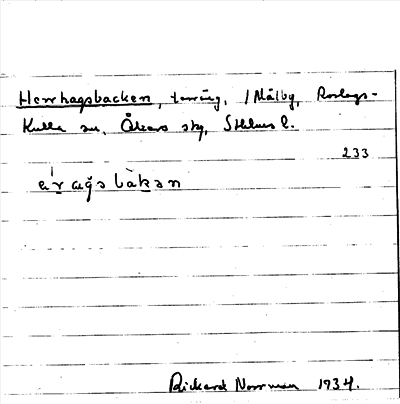 Herrhagsbacken, terräng, /Målby, Roslags-
Kulla sn, Åkers skg, Sthlms l.
233
Rickard Norrman 1934.